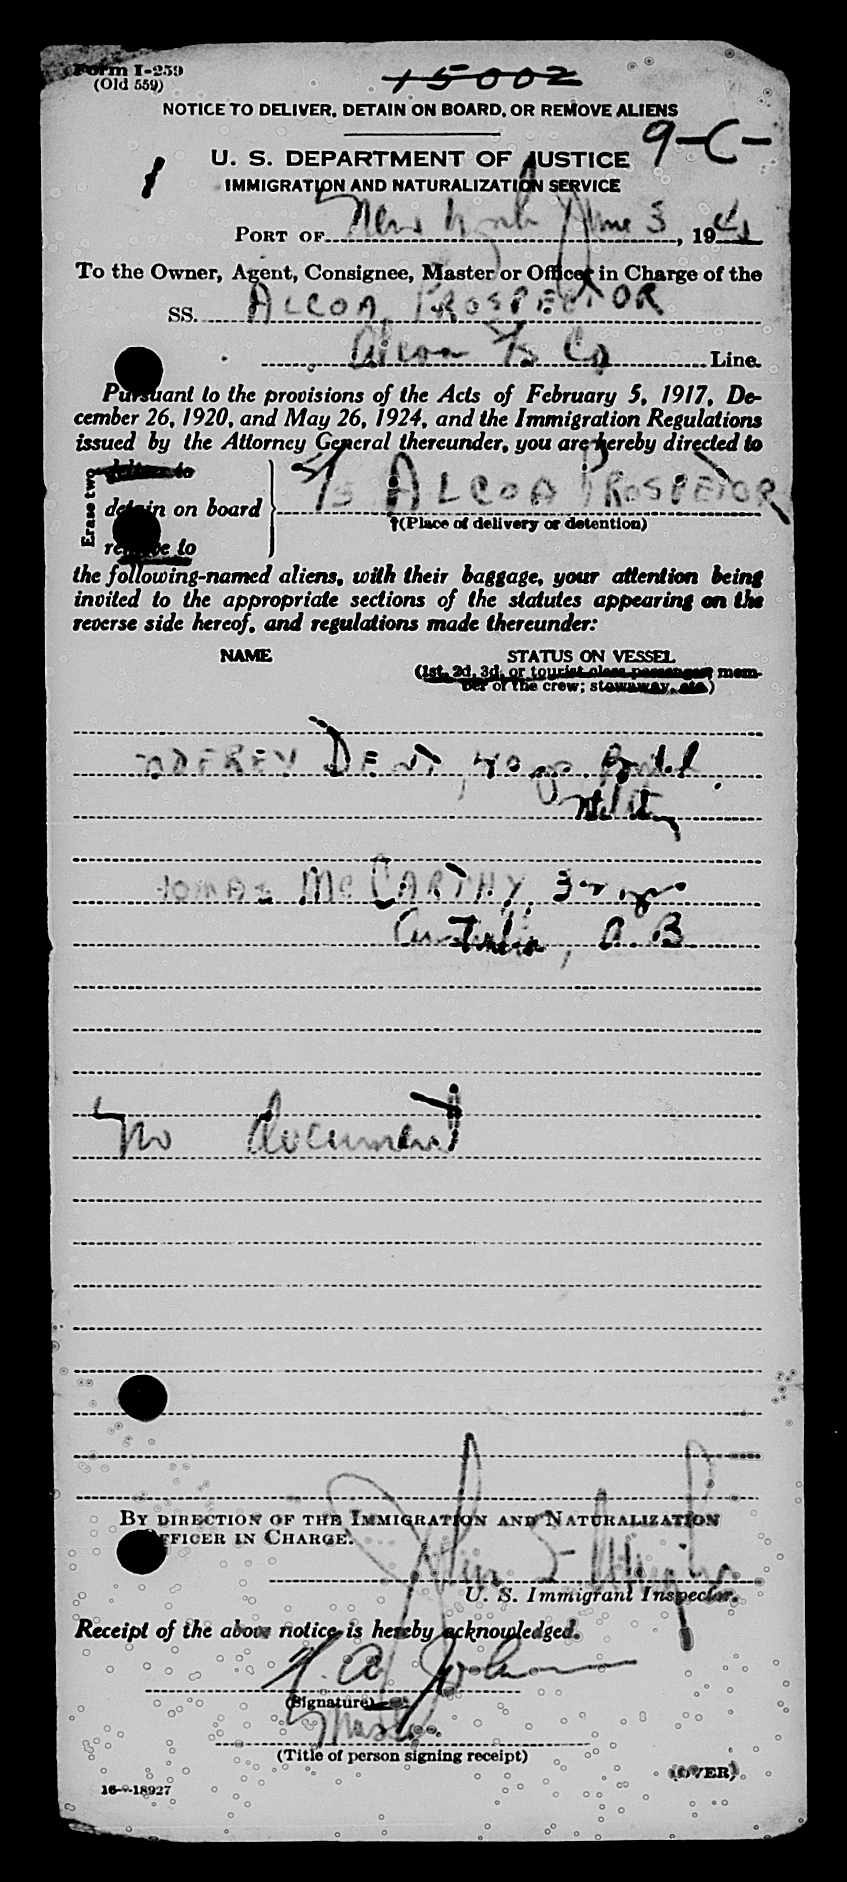 Form I-259
(Old 559)
15002
NOTICE TO DELIVER, DETAIN ON BOARD, OR REMOVE ALIENS
9-C-
U. S. DEPARTMENT OF JUSTICE
IMMIGRATION AND NATURALIZATION SERVICE
PORT OF New York June 3, 194
To the Owner, Agent, Consignee, Master or Officer in Charge of the
SS. ALCOA PROSPECTOR
Alcoa SS Co Line.
Pursuant to the provisions of the Acts of February 5, 1917, De-
cember 26, 1920, and May 26, 1924, and the Immigration Regulations
issued by the Attorney General thereunder, you are hereby directed to
Erase two
deliver to
detain on board S/S ALCOA PROSPETOR
(Place of delivery or detention)
remove to
the following-named aliens, with their baggage, your attention being
invited to the appropriate sections of the statutes appearing on the
reverse side hereof, and regulations made thereunder:
NAME STATUS ON VESSEL
(1st, 2d, 3d, or tourist class passenger; mem-
ber of the crew; stowaway, etc.)
DENT, 40 yrs.
McCARTHY, yrs
Australia, A.B.
No document
BY DIRECTION OF THE IMMIGRATION AND NATURALIZATION
OFFICER IN CHARGE.
John
U. S. Immigrant Inspector.
Receipt of the above notice is hereby acknowledged.
(Signature)
Master
(Title of person signing receipt)
(OVER)
16-18927